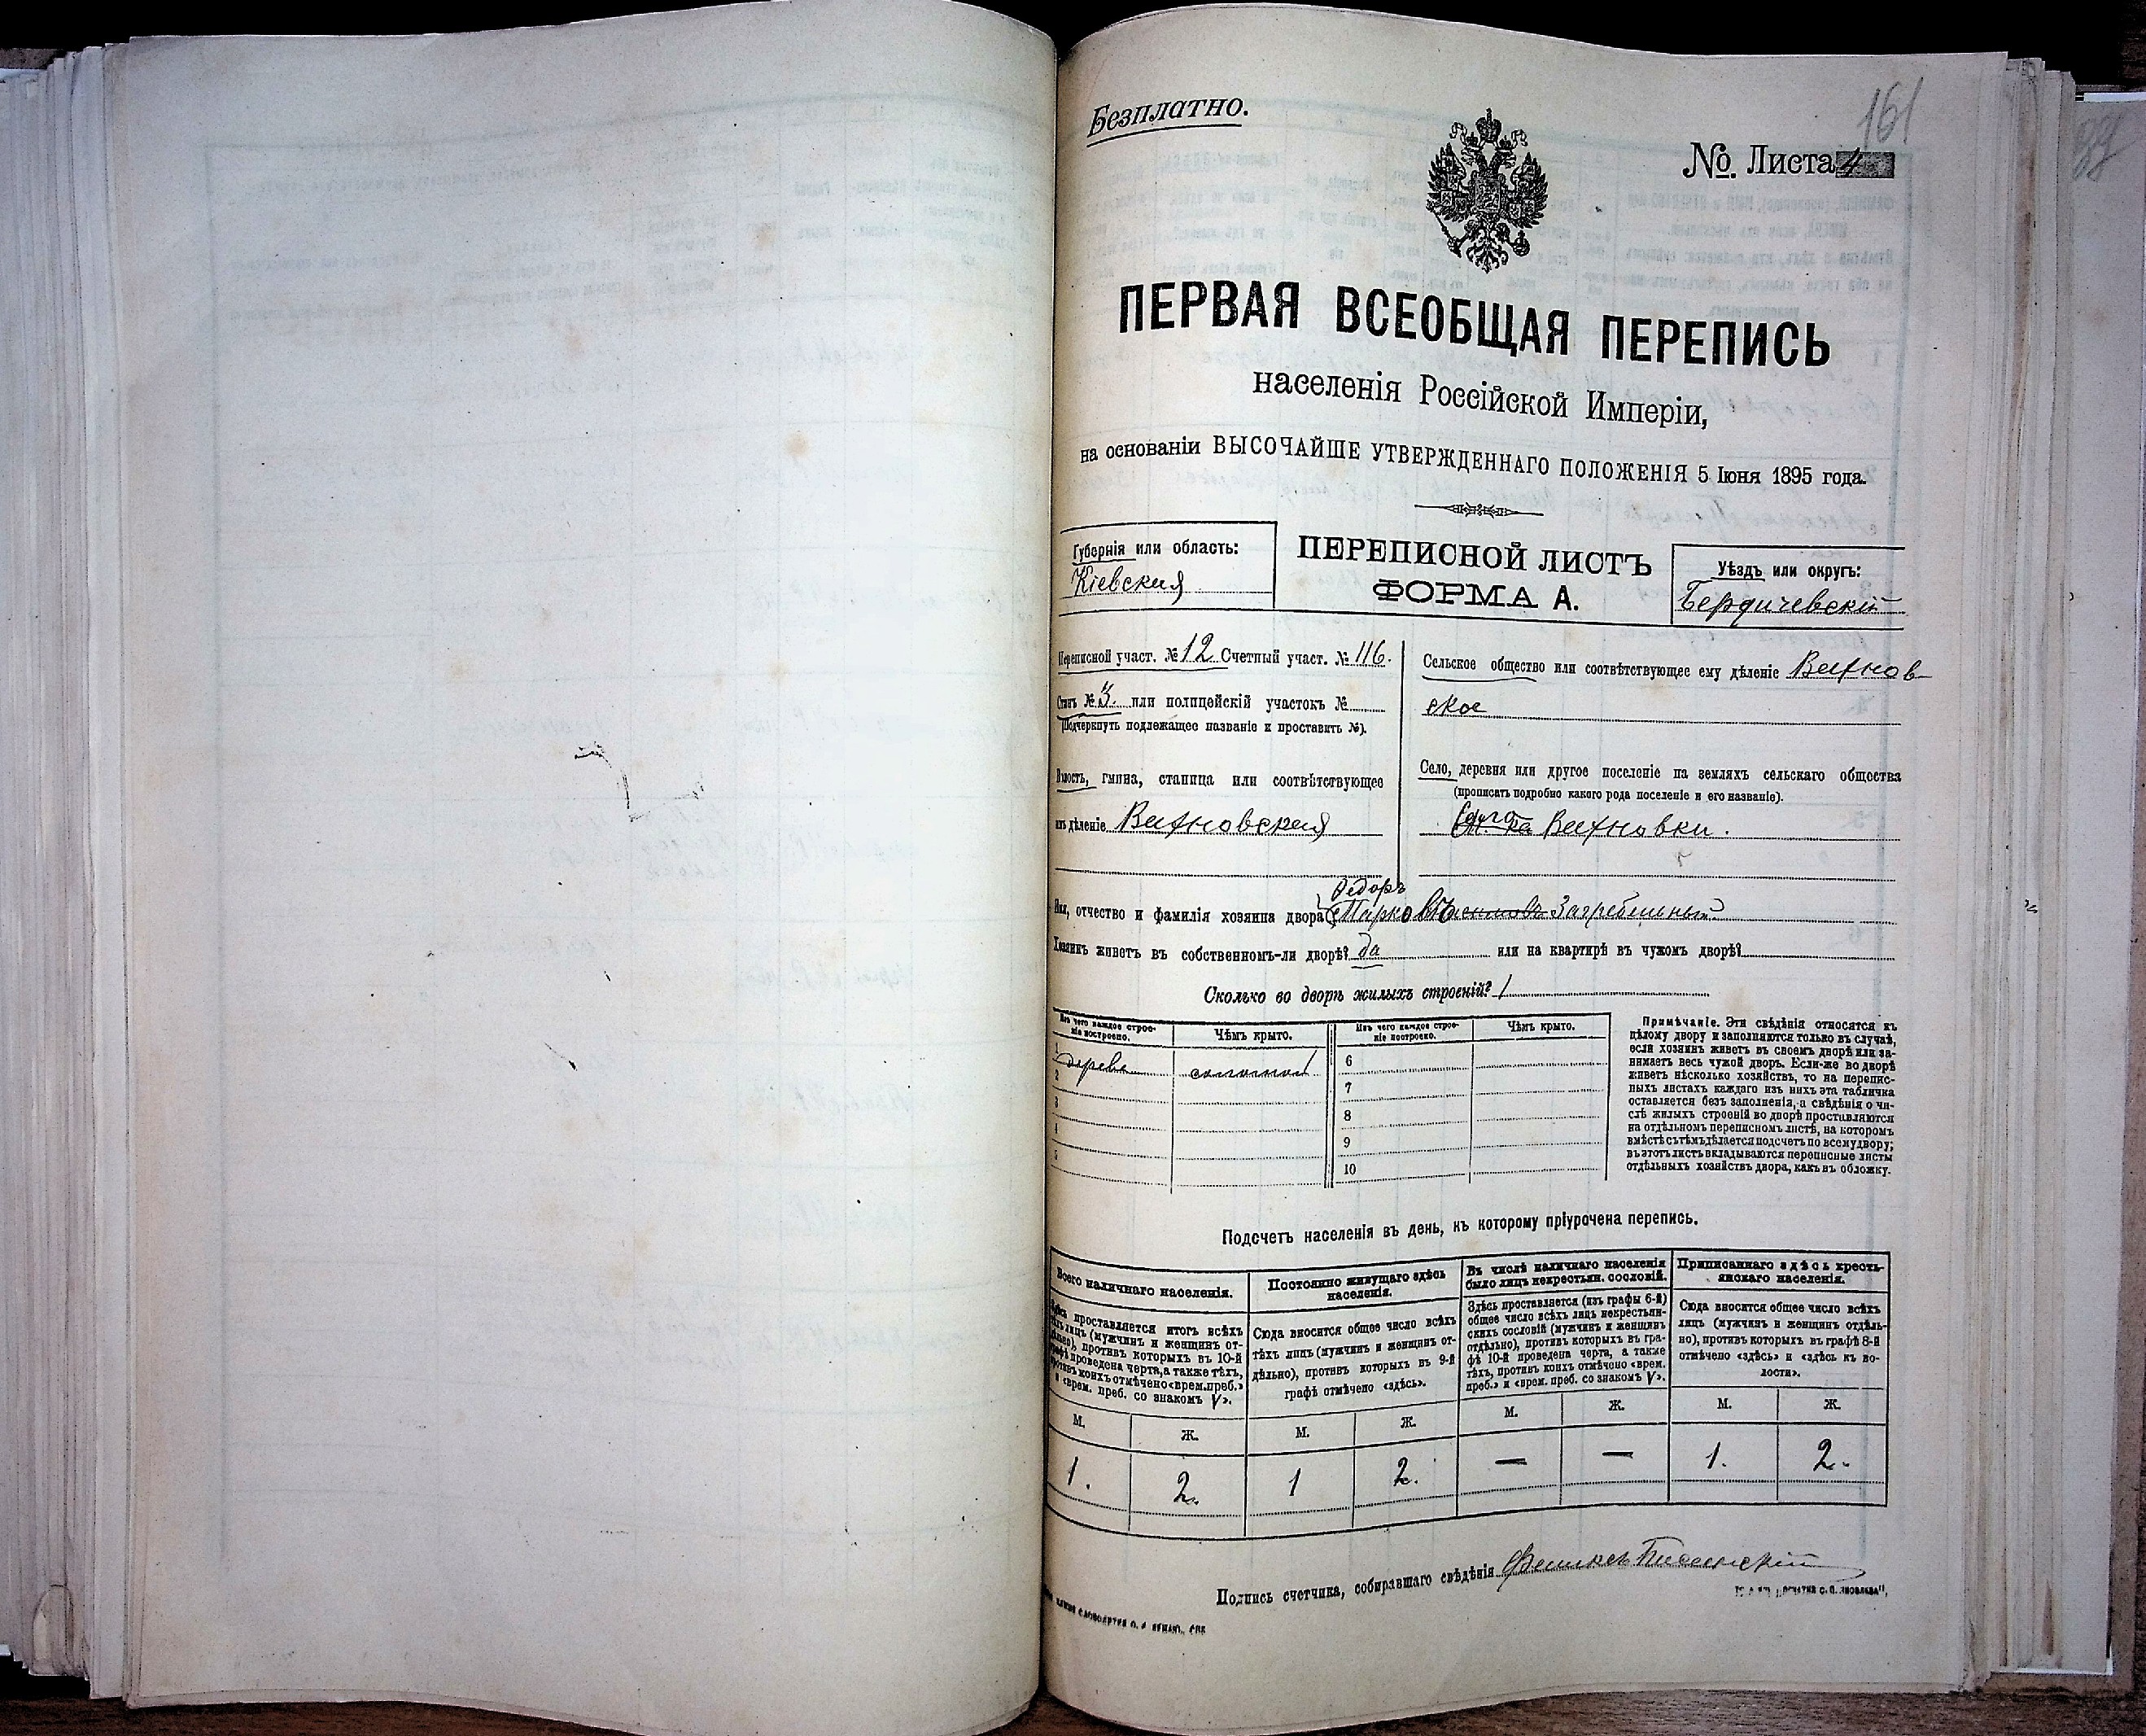 161
Безплатно.
№. Листа 4
ПЕРВАЯ ВСЕОБЩАЯ ПЕРЕПИСЬ
населенія Россійской Имперіи,
на основаніи ВЫСОЧАЙШЕ УТВЕРЖДЕННАГО ПОЛОЖЕНІЯ 5 Іюня 1895 года.
Губернія или область:
Кіевская
ПЕРЕПИСНОЙ ЛИСТЪ
ФОРМА А.
Уѣздъ или округъ:
Бердичевскій
Переписной участ. № 12 Счетный участ. № 116.
Станъ № 3. или полицейскій участокъ №
(Подчеркнуть подлежащее названіе и проставить №).
Волость, гмина, станица или соотвѣтствующее
имъ дѣленіе Вахновская
Сельское общество или соотвѣтствующее ему дѣленіе Вахнов
ское
Село, деревня или другое поселеніе на земляхъ сельскаго общества
(прописать подробно какого рода поселеніе и его названіе).
Вахновки.
Федоръ
Имя, отчество и фамилія хозяина двора Марковъ Загребельный
Хозяинъ живетъ въ собственномъ-ли дворѣ? да или на квартирѣ въ чужомъ дворѣ?
Сколько во дворѣ жилыхъ строеній? 1
Изъ чего каждое строе-
ніе построено.
Чѣмъ крыто.
Изъ чего каждое строе-
ніе построено.
Чѣмъ крыто.
1 дерева соломой
2
3
4
5
6
7
8
9
10
Примѣчаніе. Эти свѣдѣнія относятся къ
цѣлому двору и заполняются только въ случаѣ,
если хозяинъ живетъ въ своемъ дворѣ или за-
нимаетъ весь чужой дворъ. Если-же во дворѣ
живетъ нѣсколько хозяйствъ, то на перепис-
ныхъ листахъ каждаго изъ нихъ эта табличка
оставляется безъ заполненія, а свѣдѣнія о чи-
слѣ жилыхъ строеній во дворѣ проставляются
на отдѣльномъ переписномъ листѣ, на которомъ
вмѣстѣ съ тѣмъ дѣлается подсчетъ по всему двору;
въ этотъ листъ вкладываются переписные листы
отдѣльныхъ хозяйствъ двора, какъ въ обложку.
Подсчетъ населенія въ день, къ которому пріурочена перепись.
Всего наличнаго населенія.
Здѣсь проставляется итогъ всѣхъ
тѣхъ лицъ (мужчинъ и женщинъ от-
дѣльно), противъ которыхъ въ 10-й
графѣ проведена черта, а также тѣхъ,
противъ коихъ отмѣчено «врем. преб.»
и «врем. преб. со знакомъ V».
Постоянно живущаго здѣсь
населенія.
Сюда вносится общее число всѣхъ
тѣхъ лицъ (мужчинъ и женщинъ от-
дѣльно), противъ которыхъ въ 9-й
графѣ отмѣчено «здѣсь».
Въ числѣ наличнаго населенія
было лицъ некрестьян. сословій.
Здѣсь проставляется (изъ графы 6-й)
общее число всѣхъ лицъ некрестьян-
скихъ сословій (мужчинъ и женщинъ
отдѣльно), противъ которыхъ въ гра-
фѣ 10-й проведена черта, а также
тѣхъ, противъ коихъ отмѣчено «врем.
преб.» и «врем. преб. со знакомъ V».
Приписаннаго здѣсь кресть-
янскаго населенія.
Сюда вносится общее число всѣхъ
лицъ (мужчинъ и женщинъ отдѣль-
но), противъ которыхъ въ графѣ 8-й
отмѣчено «здѣсь» и «здѣсь къ во-
лости».
М. Ж. М. Ж. М. Ж. М. Ж.
1. 2. 1 2. — — 1. 2.
Подпись счетчика, собиравшаго свѣдѣнія Феликсъ